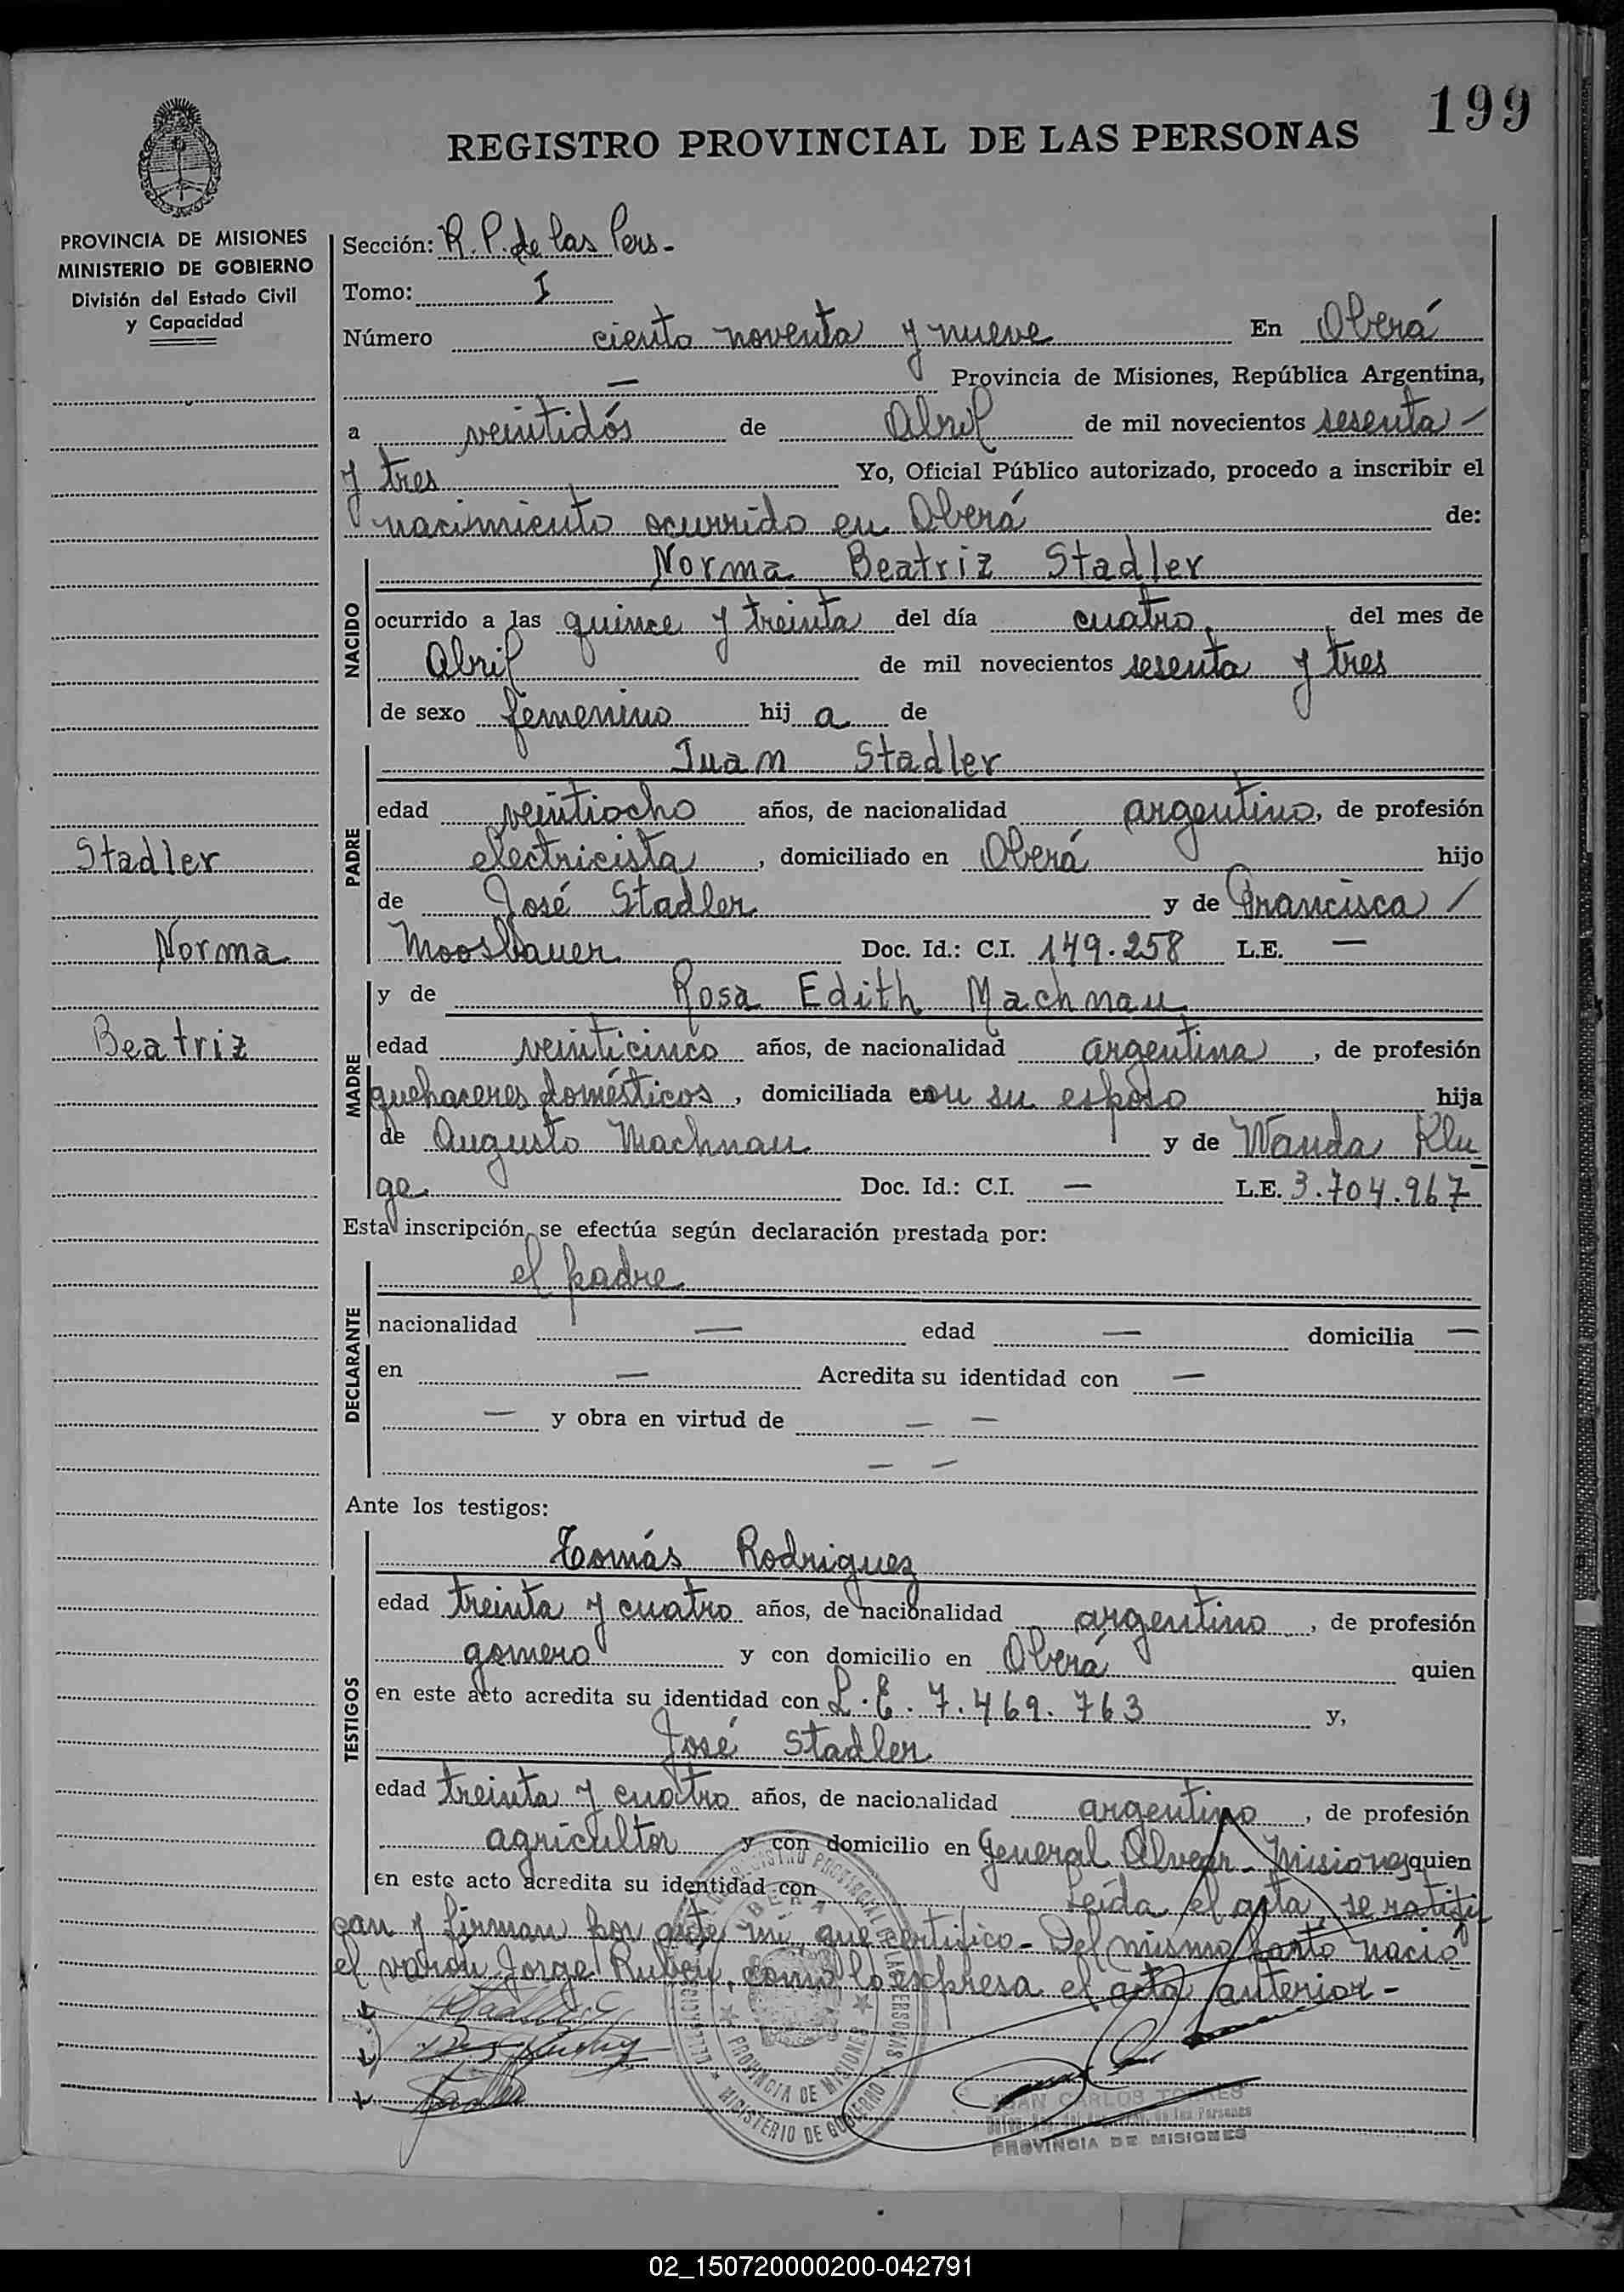 199
REGISTRO PROVINCIAL DE LAS PERSONAS
PROVINCIA DE MISIONES
MINISTERIO DE GOBIERNO
División del Estado Civil
y Capacidad
Stadler
Norma
Beatriz
Sección: R. P. de las Pers-
Tomo: I
Número ciento noventa y nueve En Oberá
— Provincia de Misiones, República Argentina,
a veintidós de Abril de mil novecientos sesenta
y tres Yo, Oficial Público autorizado, procedo a inscribir el
nacimiento ocurrido en Oberá de:
NACIDO
Norma Beatriz Stadler
ocurrido a las quince y treinta del día cuatro del mes de
Abril de mil novecientos sesenta y tres
de sexo femenino hij a de
PADRE
Juan Stadler
edad veintiocho años, de nacionalidad argentino, de profesión
electricista, domiciliado en Oberá hijo
de José Stadler y de Francisca /
Moosbauer Doc. Id.: C.I. 149.258 L.E. —
MADRE
y de Rosa Edith Machnau
edad veinticinco años, de nacionalidad argentina, de profesión
quehaceres domésticos, domiciliada con su esposo hija
de Augusto Machnau y de Wanda Klu
ge Doc. Id.: C.I. — L.E. 3.704.967
Esta inscripción se efectúa según declaración prestada por:
DECLARANTE
el padre
nacionalidad — edad — domicilia —
en — Acredita su identidad con —
— y obra en virtud de — —
— —
Ante los testigos:
TESTIGOS
Tomás Rodriguez
edad treinta y cuatro años, de nacionalidad argentino, de profesión
gomero y con domicilio en Oberá quien
en este acto acredita su identidad con L.E. 7.469.763 y,
José Stadler
edad treinta y cuatro años, de nacionalidad argentino, de profesión
agricultor y con domicilio en General Alvear - Misiones quien
en este acto acredita su identidad con Leída el acta, se ratifi
can y firman por ante mí, que certifico - Del mismo parto nació
el varón Jorge Rubén, como lo expresa el acta anterior -
PROVINCIA DE MISIONES
MINISTERIO DE GOBIERNO
JUAN CARLOS TORRES
PROVINCIA DE MISIONES
02_150720000200-042791